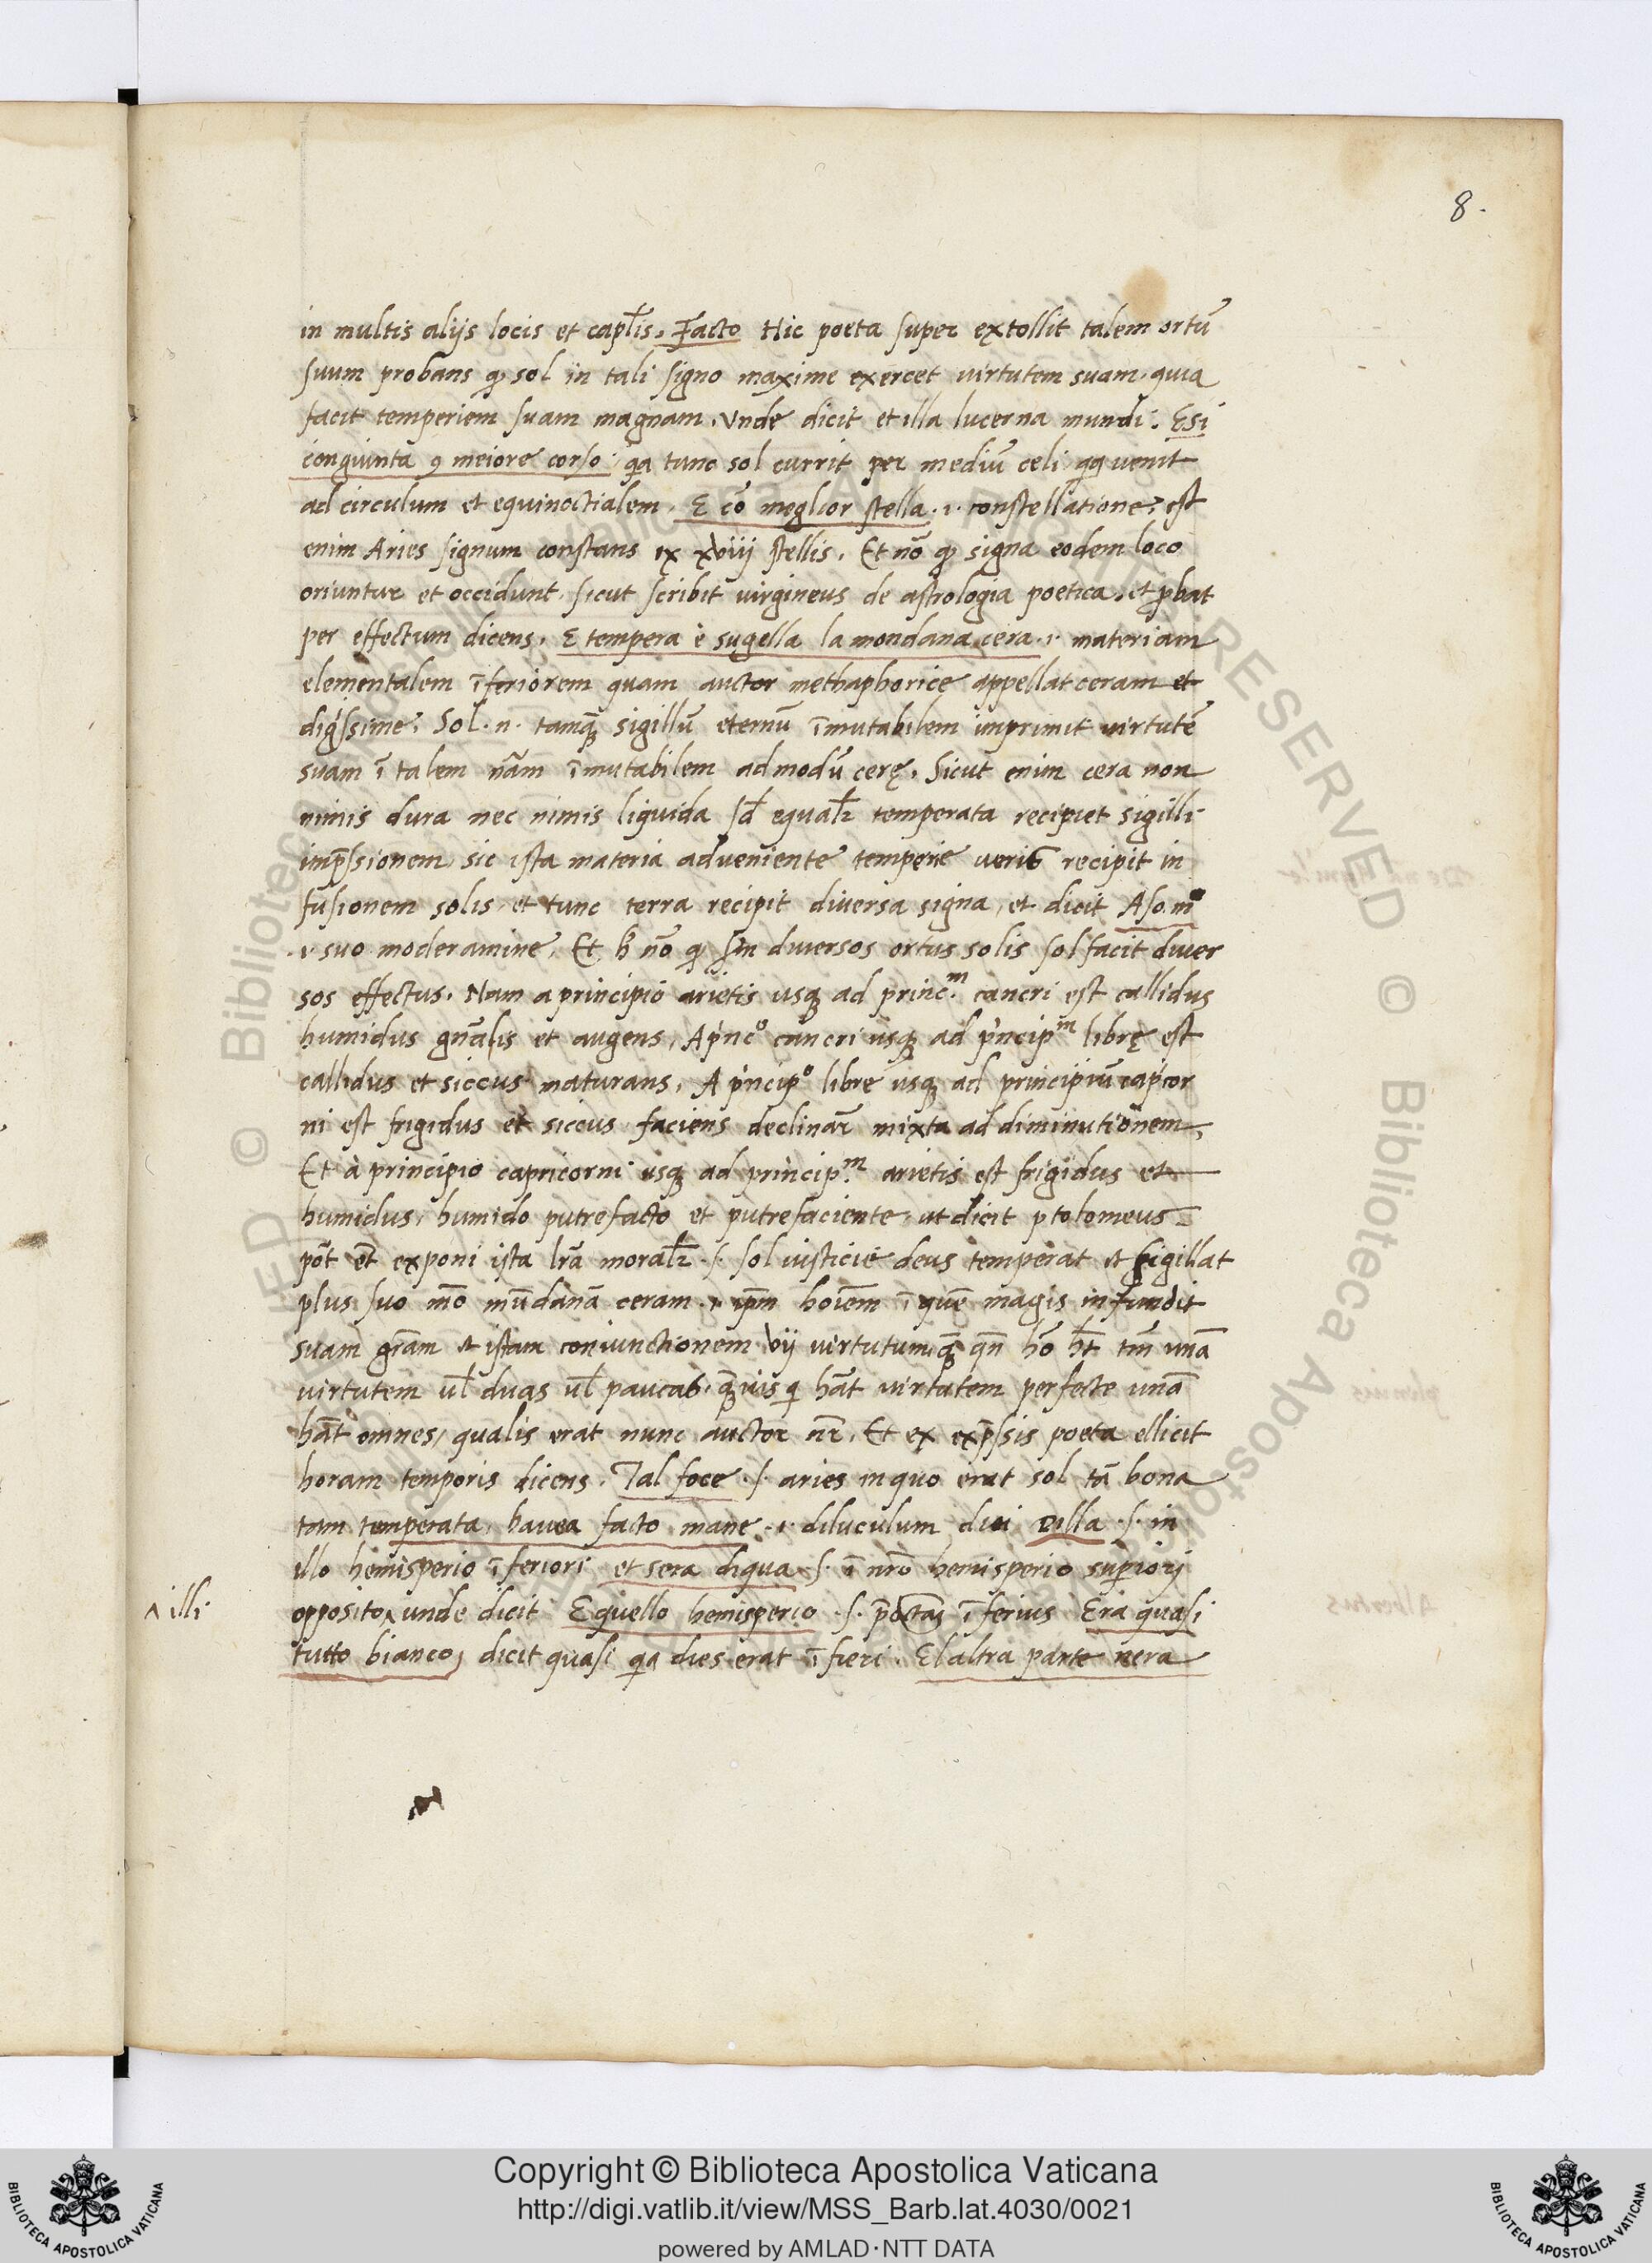 8.
in multis alijs locis et capl̃is. Facto Hic poeta super extollit talem ortũ
suum probans ꝙ sol in tali signo maxime exercet virtutem suam. quia
facit temperiem suam magnam. Unde dicit et illa lucerna mundi. Esi
congiunta ꝯ meiore corso. qa tunc sol currit per mediũ celi qq venit
ad circulum et equinoctialem. E cõ meglior stella .i. constellatione, est
enim Aries signum constans ex xviij stellis. Et nõ ꝙ signa eodem loco
oriuntur et occidunt. sicut scribit virgineus de astrologia poetica. et ꝓbat
per effectum dicens. E tempera è sugella la mondana cera .i. materiam
elementalem ĩferiorem quam auctor methaphorice appellat ceram et
digs̃sime. Sol .n. tamqꝫ sigillũ eternũ ĩmutabilem imprimit virtutẽ
suam ĩ talem nãm ĩmutabilem ad modũ cerę. Sicut enim cera non
nimis dura nec nimis liquida sd̃ equalr̃ temperata recipiet sigilli
imp̃ssionem sic ista materia adveniente temperie veris recipit in
fusionem solis, et tunc terra recipit diversa signa, et dicit Aso. mº
.i. suo moderamine. Et h̃ nõ ꝙ sm̃ diversos ortus solis sol facit diver
sos effectus. Nam a principio arietis usqꝫ ad princ.ᵐ cancri est callidus
humidus gñalis et augens, A p̓ncº cancri usqꝫ ad p̓ncipᵐ librę est
callidus et siccus maturans, A p̓ncipº libre usqꝫ ad principiũ cap̓cor
ni est frigidus et siccus faciens declinar̃ mixta ad diminutionem,
Et à principio capricorni usqꝫ ad princip.ᵐ arietis est frigidus et
humidus, humido putrefacto et putrefaciente, ut dicit ptolomeus
põt et̃ exponi ista lr̃a moralr̃ .s. sol iusticie deus temperat et sigillat
plus suo mõ mũdanã ceram .i. ip̃m hoĩem ĩ quẽ magis infundit
suam gr̃am et istam coniunctionem vij virtutum, qꝫ qñ hõ h̃t tm̃ unã
virtutem ul̃ duas ul̃ paucas. qꝫvis q hãt virtutem perfecte unã
hãt omnes, qualis erat nunc auctor nr̃. Et ex exp̃ssis poeta ellicit
horam temporis dicens. Tal foce .s. aries in quo erat sol tã bona
tam temperata, havea facto mane .i. diluculum diei Dilla .s. in
illo hemisperio ĩferiori et sera diqua .s. ĩ nr̃o hemisperio superiorj
^ illi.
opposito^ unde dicit E quello hemisperio .s. ĩferius Era quasi
tutto bianco, dicit quasi qa dies erat ĩ fieri. El altra parte nera
Copyright © Biblioteca Apostolica Vaticana
http://digi.vatlib.it/view/MSS_Barb.lat.4030/0021
powered by AMLAD·NTT DATA